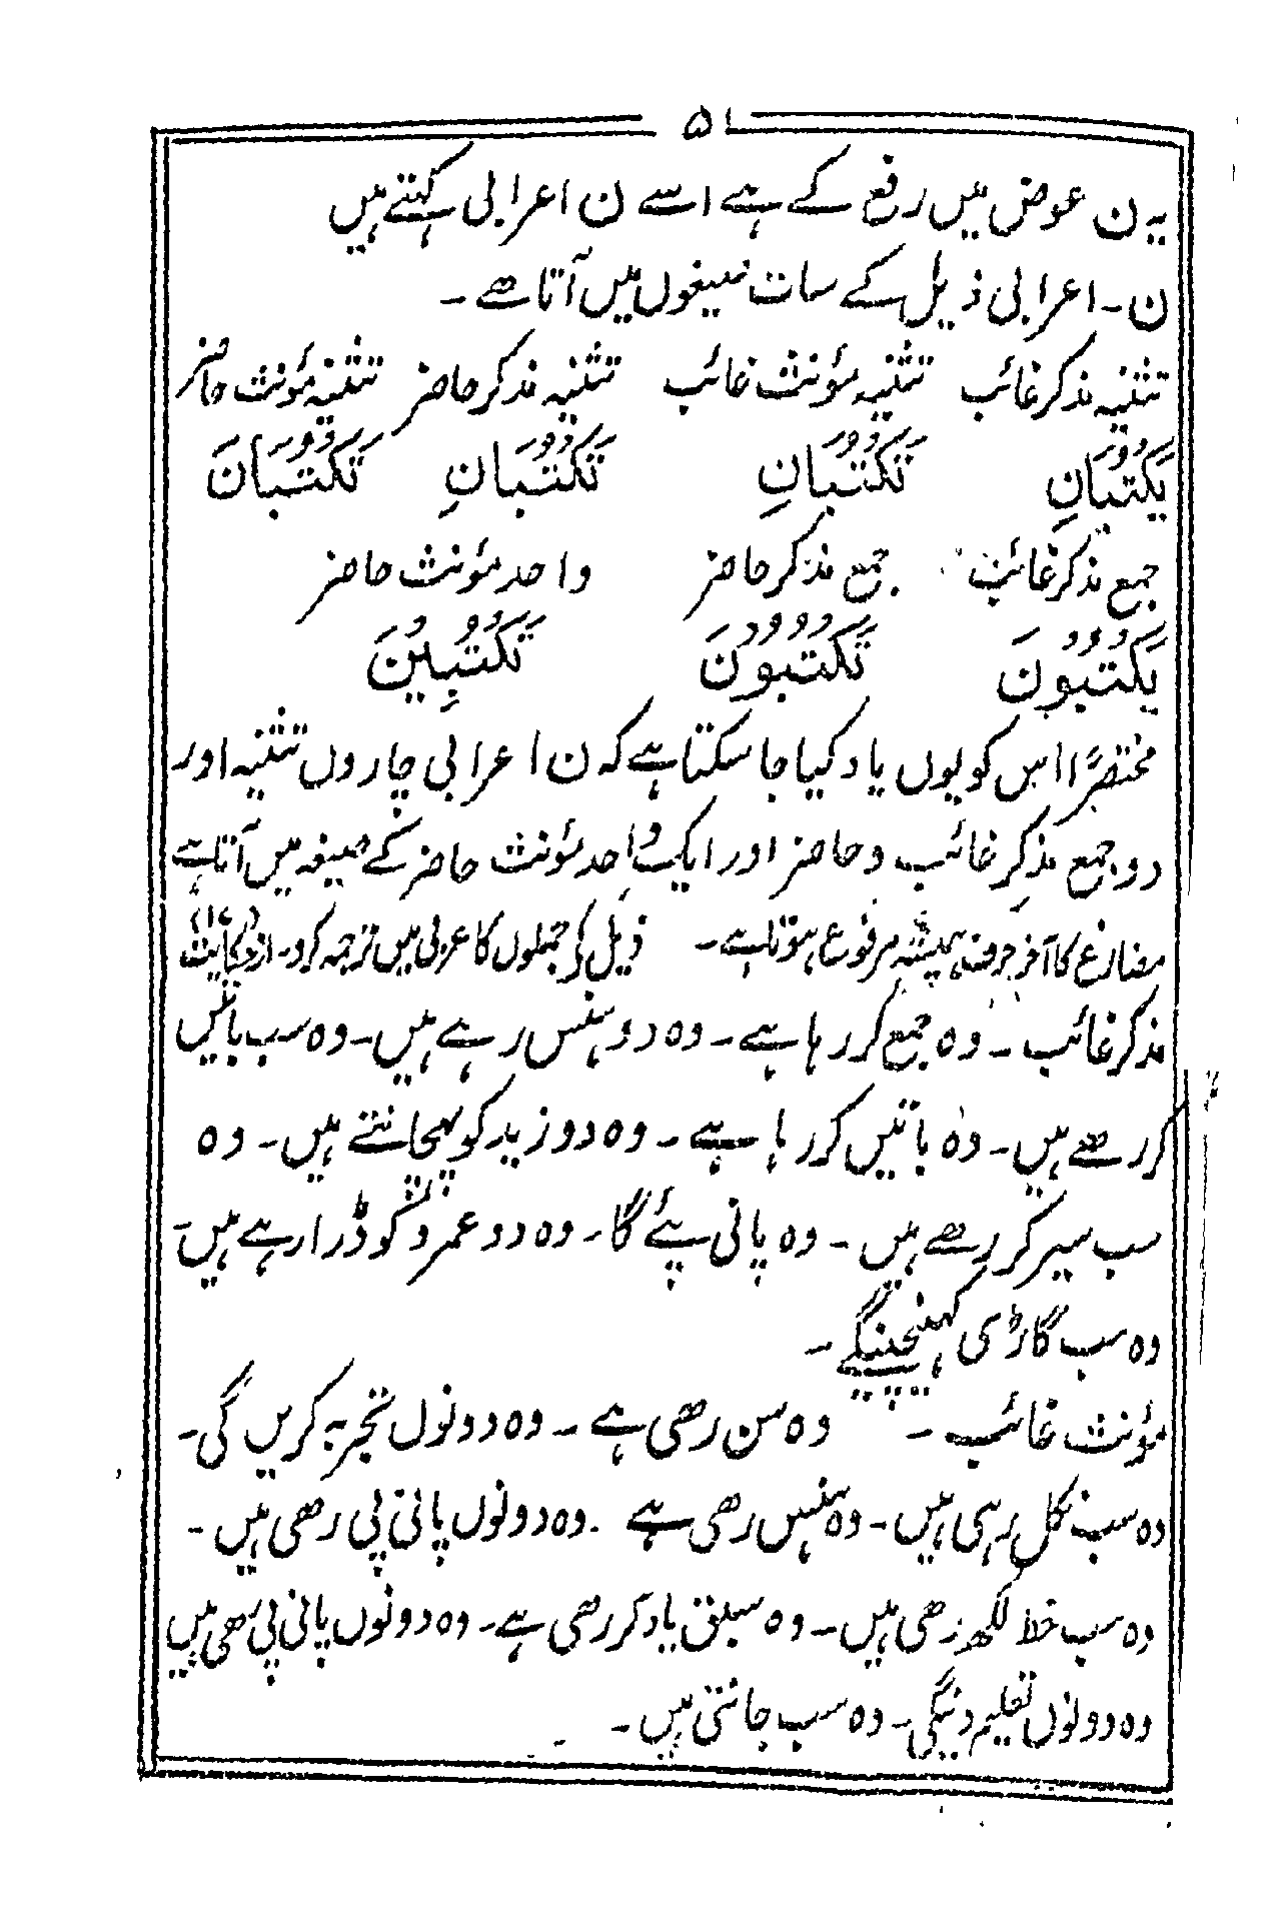 ۵۱
یہ ن عوض میں رفع کے ہے اسے ن اعرابی کہتے ہیں
ن۔ اعرابی ذیل کے سات صیغوں میں آتا ھے ۔
تثنیہ مذکر غائب تثنیہ مؤنث غائب تثنیہ مذکر حاضر تثنیہ مؤنث حاضر
یَکْتُبَانِ تَکْتُبَانِ تَکْتُبَانِ تَکْتُبَانَ
جمع مذکر غائب جمع مذکر حاضر واحد مؤنث حاضر
یَکْتُبُوْنَ تَکْتُبُوْنَ تَکْتُبِیْنَ
مختصراً اس کو یوں یاد کیا جا سکتا ہے کہ ن اعرابی چاروں تثنیہ اور
دو جمع مذکرِ غائب و حاضر اور ایک واحد مؤنث حاضر کے صیغہ میں آتا ہے
مضارع کا آخر حرف ہمیشہ مرفوع ہوتا ہے ۔ ذیل کی جملوں کا عربی میں ترجمہ کرو۔ از حکایت (۱۷)
مذکر غائب ۔ وہ جمع کر رہا ہے ۔ وہ دو ہنس رہے ہیں۔ وہ سب باتیں
کر رھے ہیں۔ وہ باتیں کر رہا ہے ۔ وہ دو زید کو پہچانتے ہیں۔ وہ
سب سیر کر رھے ہیں ۔ وہ پانی پئے گا۔ وہ دو عمرو کو ڈرا رہے ہیں۔
وہ سب گاڑی کھینچینگے ۔
مؤنث غائب ۔ وہ سن رھی ہے ۔ وہ دونوں تجربہ کریں گی۔
وہ سب نکل رہی ہیں۔ وہ ہنس رھی ہے ۔ وہ دونوں پانی پی رھی ہیں ۔
وہ سب خط لکھ رھی ہیں۔ وہ سبق یاد کر رھی ہے۔ وہ دونوں پانی پی رھی ہیں
وہ دونوں تعلیم دینگی۔ وہ سب جانتی ہیں ۔